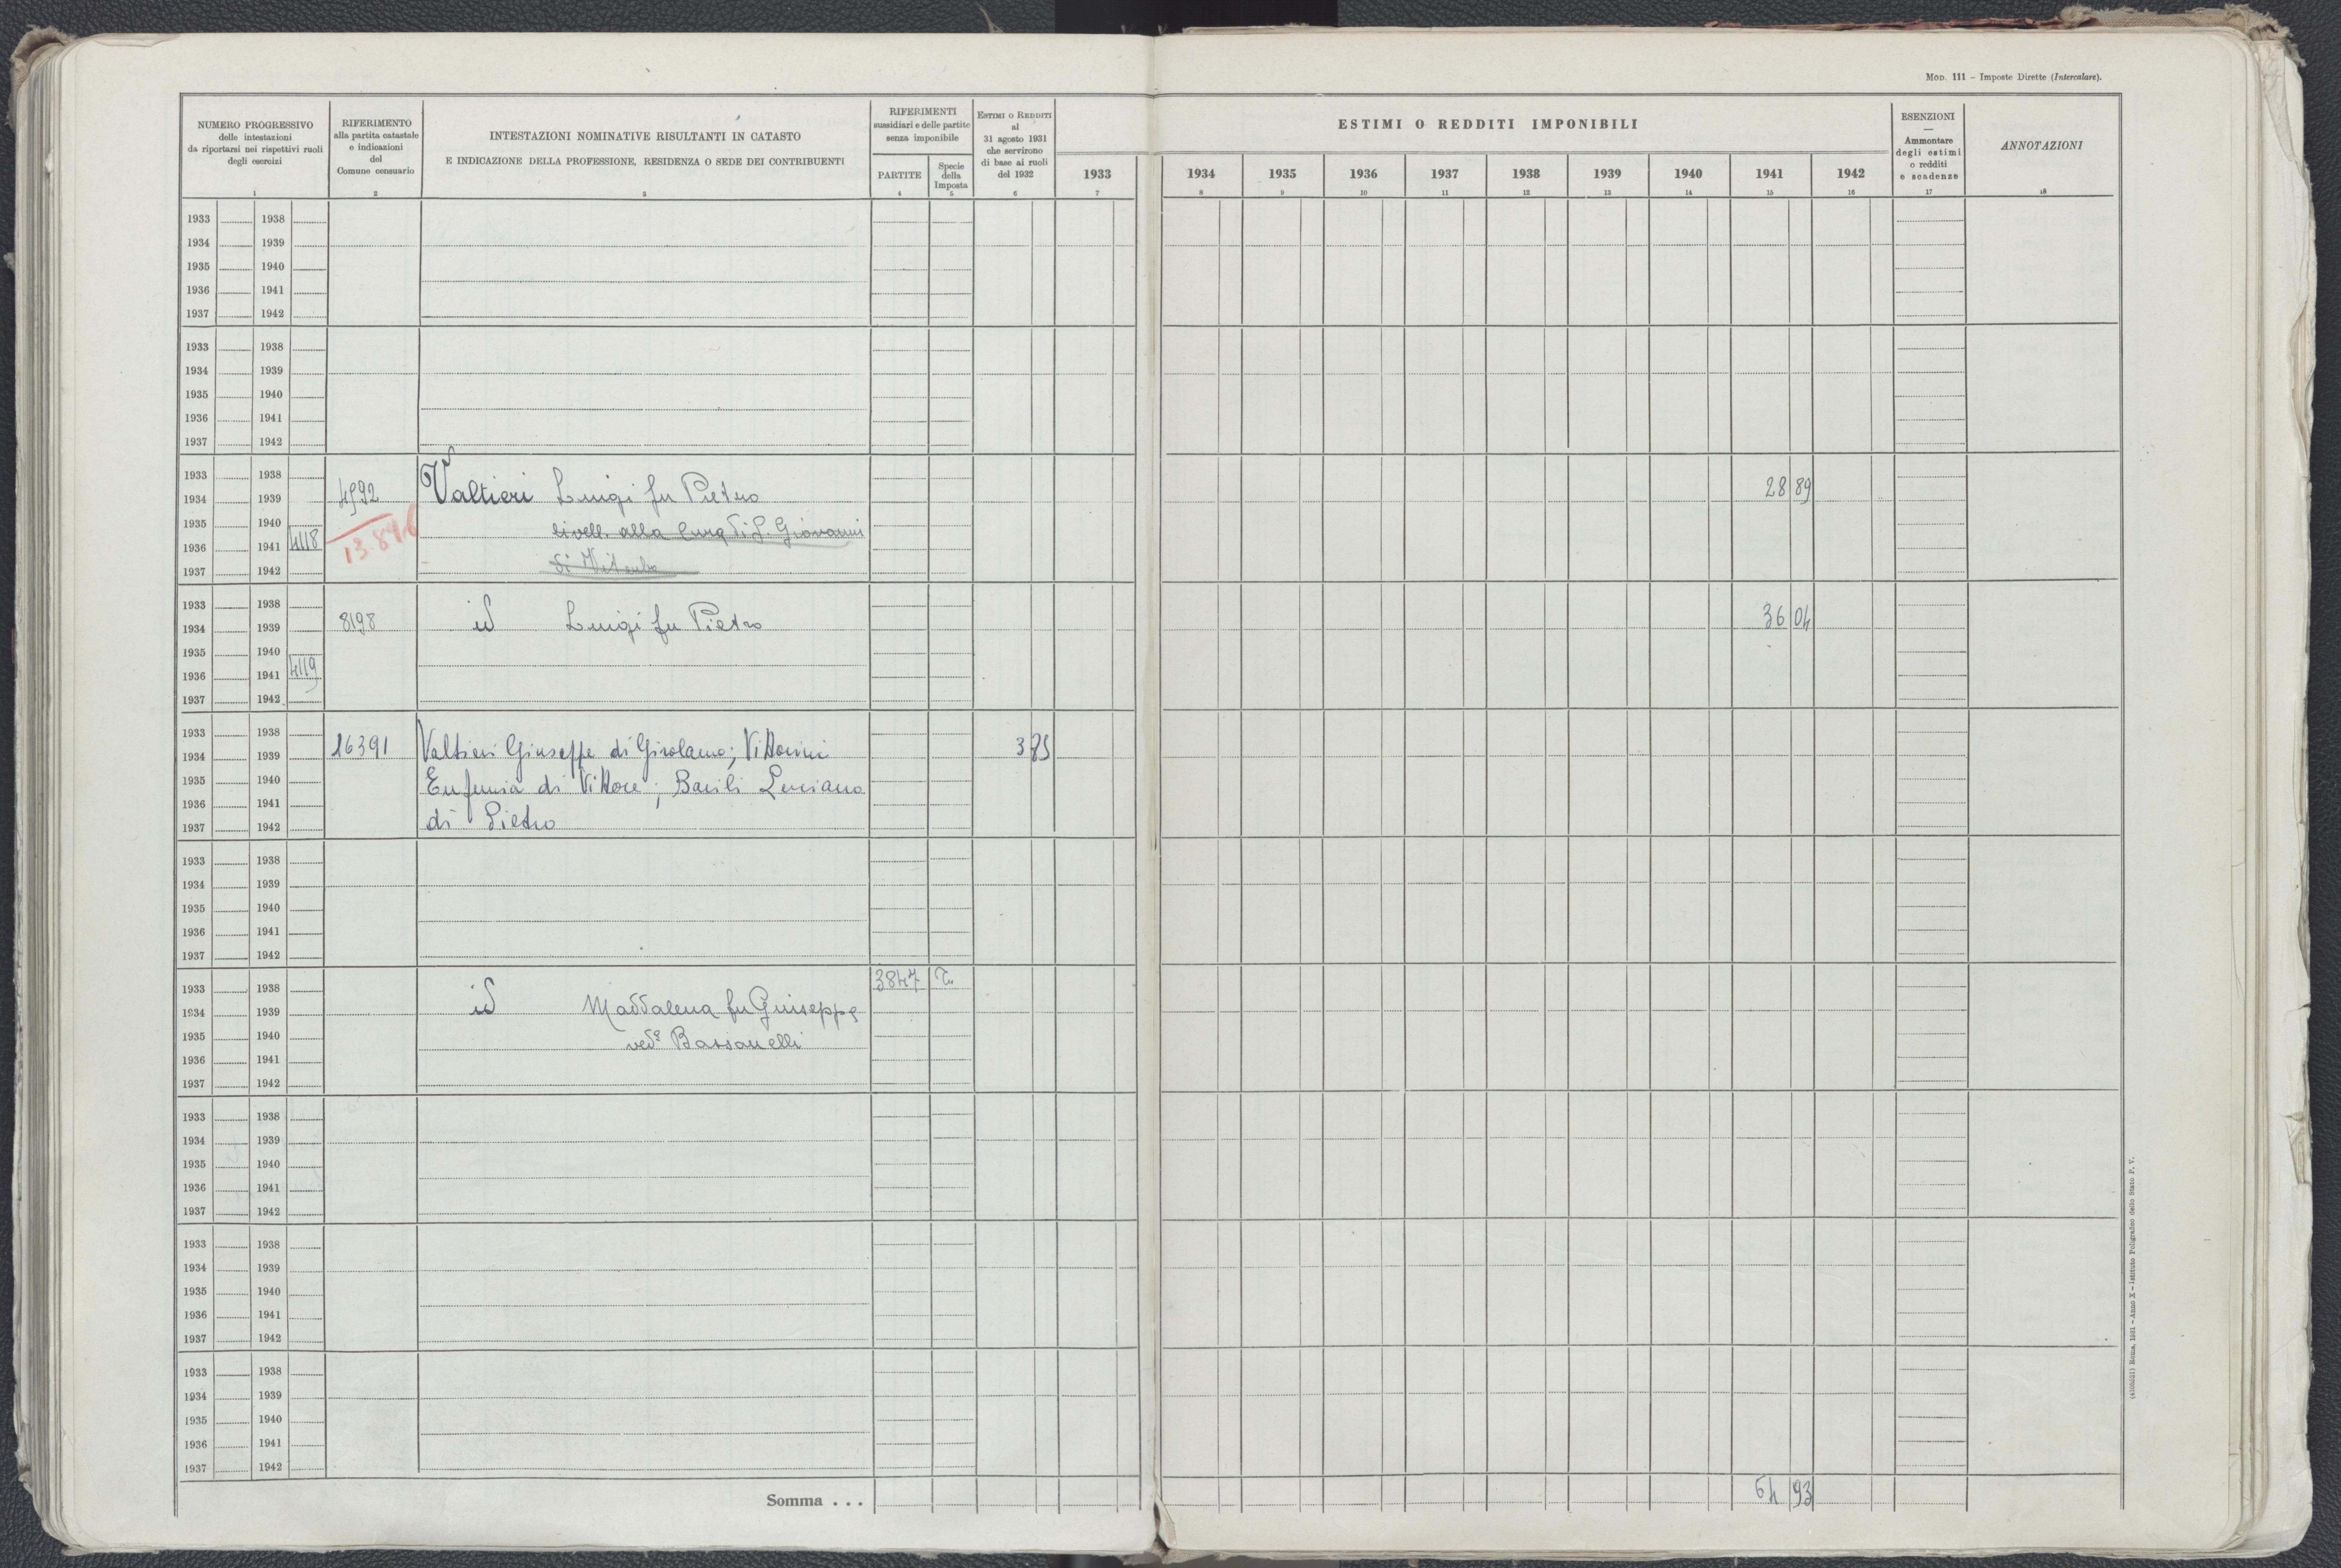 Mod. 111 – Imposte Dirette (Intercalare).
NUMERO PROGRESSIVO
delle intestazioni
da riportarsi nei rispettivi ruoli
degli esercizi
1
RIFERIMENTO
alla partita catastale
e indicazioni
del
Comune censuario
2
INTESTAZIONI NOMINATIVE RISULTANTI IN CATASTO
E INDICAZIONE DELLA PROFESSIONE, RESIDENZA O SEDE DEI CONTRIBUENTI
3
RIFERIMENTI
sussidiari e delle partite
senza imponibile
PARTITE
4
Specie
della
Imposta
5
Estimi o Redditi
al
31 agosto 1931
che servirono
di base ai ruoli
del 1932
6
ESTIMI O REDDITI IMPONIBILI
1933 1934 1935 1936 1937 1938 1939 1940 1941 1942
7 8 9 10 11 12 13 14 15 16
ESENZIONI
—
Ammontare
degli estimi
o redditi
e scadenze
17
ANNOTAZIONI
18
1933 1938
1934 1939
1935 1940
1936 1941
1937 1942
1933 1938
1934 1939
1935 1940
1936 1941
1937 1942
1933 1938
1934 1939 4592 Valtieri Luigi fu Pietro 28 89
1935 1940 livell. alla Cura di S. Giovanni
1936 1941 4118 13.896
1937 1942 di Viterbo
1933 1938
1934 1939 8198 id Luigi fu Pietro 36 04
1935 1940
1936 1941 4119
1937 1942
1933 1938
1934 1939 16391 Valtieri Giuseppe di Girolamo; Vittorini 3 75
1935 1940 Eufemia di Vittore; Basili Luciano
1936 1941
1937 1942 di Pietro
1933 1938
1934 1939
1935 1940
1936 1941
1937 1942
1933 1938 3847
1934 1939 id Maddalena fu Giuseppe
1935 1940 ved.a Bassanelli
1936 1941
1937 1942
1933 1938
1934 1939
1935 1940
1936 1941
1937 1942
1933 1938
1934 1939
1935 1940
1936 1941
1937 1942
1933 1938
1934 1939
1935 1940
1936 1941
1937 1942
Somma . . . 64 93
Roma, 1931 – Anno X – Istituto Poligrafico dello Stato P. V.